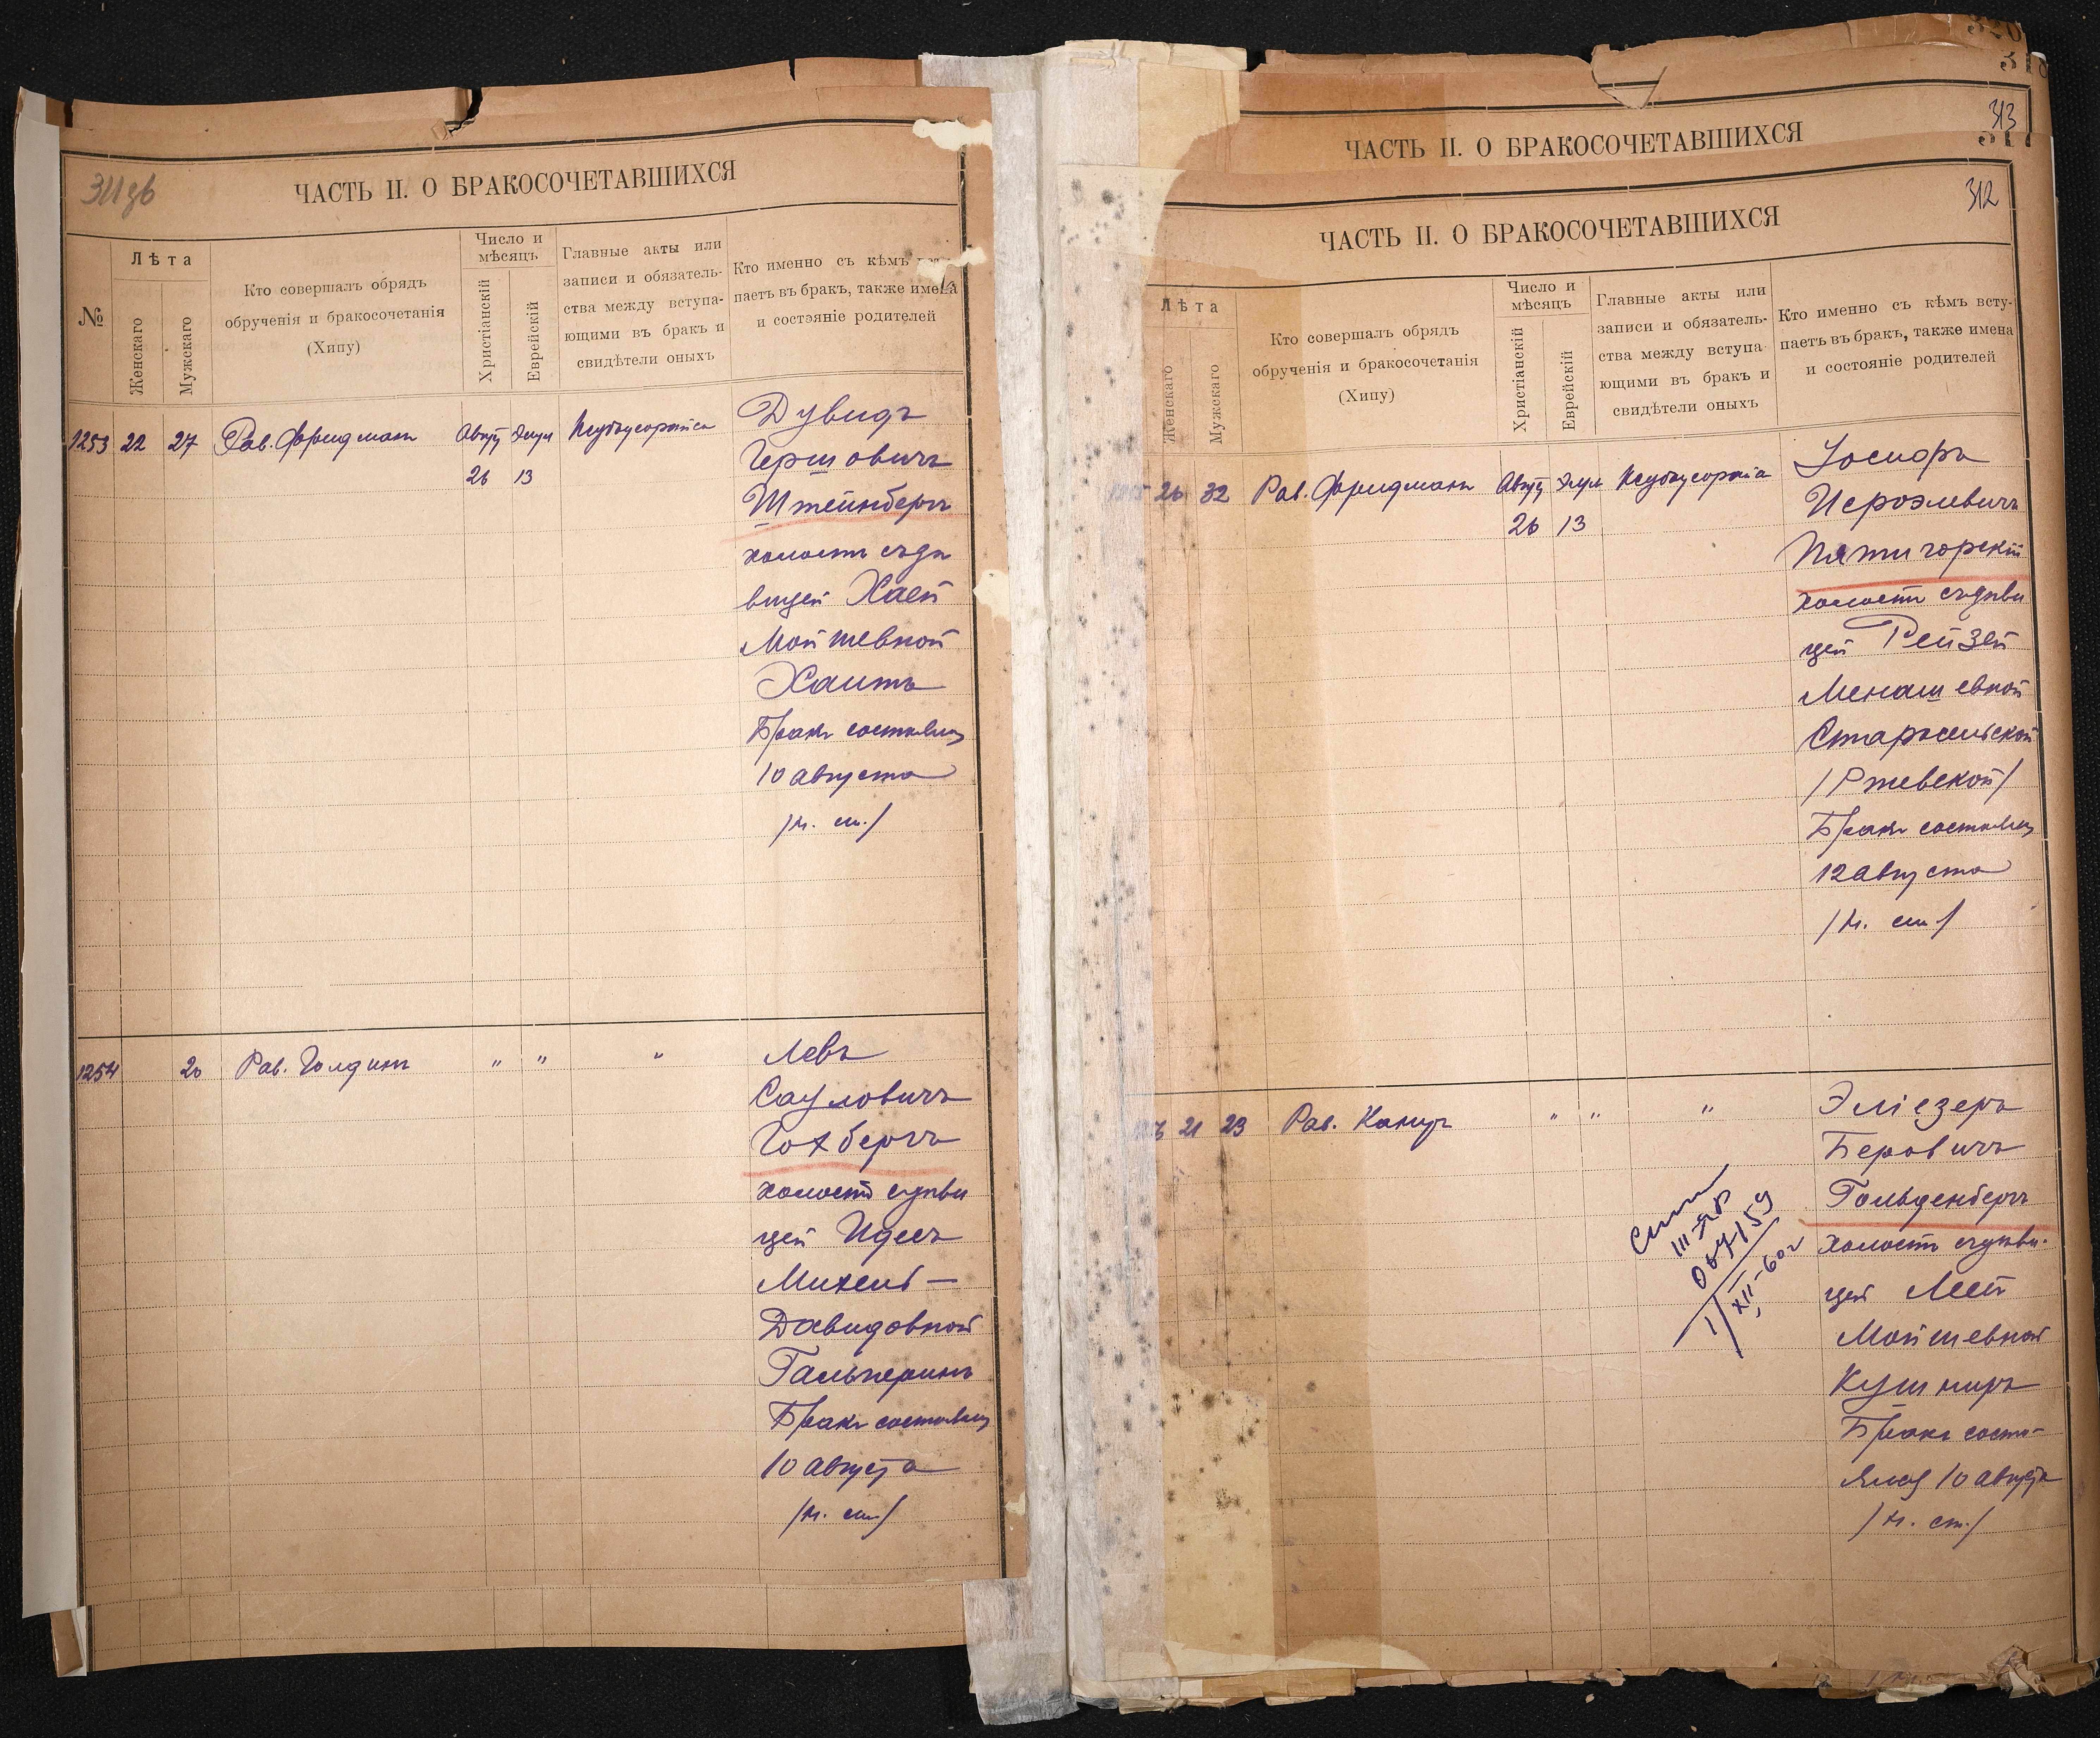 311 об
ЧАСТЬ II. О БРАКОСОЧЕТАВШИХСЯ
№
Лѣта
Женскаго
Мужскаго
Кто совершалъ обрядъ
обрученія и бракосочетанія
(Хипу)
Число и
мѣсяцъ
Христіанскій
Еврейскій
Главные акты или
записи и обязатель-
ства между вступа-
ющими въ бракъ и
свидѣтели оныхъ
Кто именно съ кѣмъ
паетъ въ бракъ, также имена
и состояніе родителей
1253 22 27 Рав. Фридманъ
26 13
Дувидъ
Гершовичъ
Штейнбергъ
холостъ съ дѣ
вицей Хаей
Мойшевной
Хаитъ
Бракъ состоялся
10 августа
/н. ст./
1254 20 Рав. Голдинъ " " "
Левъ
Сауловичъ
Гохбергъ
холостъ съ дѣви
цей Идесъ
Михель-
Давидовной
Гальперинъ
Бракъ состоялся
10 августа
/н. ст./
313
ЧАСТЬ II. О БРАКОСОЧЕТАВШИХСЯ
312
ЧАСТЬ II. О БРАКОСОЧЕТАВШИХСЯ
Лѣта
Женскаго
Мужскаго
Кто совершалъ обрядъ
обрученія и бракосочетанія
(Хипу)
Число и
мѣсяцъ
Христіанскій
Еврейскій
Главные акты или
записи и обязатель-
ства между вступа-
ющими въ бракъ и
свидѣтели оныхъ
Кто именно съ кѣмъ всту-
паетъ въ бракъ, также имена
и состояніе родителей
26 32 Рав. Фридманъ
26 13
Іосифъ
Исроэлевичъ
Пятигорскій
холостъ съ дѣви
цей Рейзей
Менашевной
Старосельской
/Ржевской/
Бракъ состоялся
12 августа
/н. ст./
21 23 Рав. Канцъ " " "
Эліезеръ
Беровичъ
Гольденбергъ
холостъ съ дѣви-
цей Леей
Мойшевной
Кушниръ
Бракъ состо-
ялся 10 августа
/н. ст./